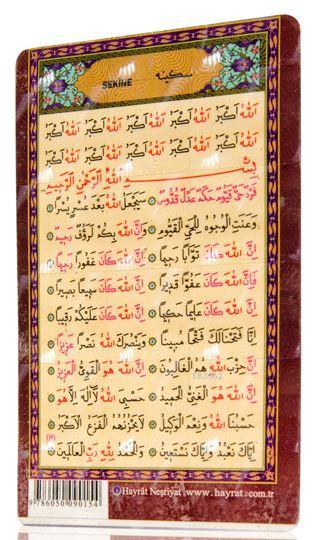 سكينه
SEKİNE
اَللّٰهُ اَكْبَرُ اَللّٰهُ اَكْبَرُ اَللّٰهُ اَكْبَرُ اَللّٰهُ اَكْبَرُ اَللّٰهُ اَكْبَرُ
اَللّٰهُ اَكْبَرُ اَللّٰهُ اَكْبَرُ اَللّٰهُ اَكْبَرُ اَللّٰهُ اَكْبَرُ اَللّٰهُ اَكْبَرُ
بِسْمِ اللّٰهِ الرَّحْمٰنِ الرَّحِيمِ
فَرْدٌ حَيٌّ قَيُّومٌ حَكَمٌ عَدْلٌ قُدُّوسٌ سَيَجْعَلُ اللّٰهُ بَعْدَ عُسْرٍ يُسْرًا
وَعَنَتِ الْوُجُوهُ لِلْحَيِّ الْقَيُّومِ وَاِنَّ اللّٰهَ بِكُمْ لَرَؤُفٌ رَحِيمٌ
اِنَّ اللّٰهَ كَانَ تَوَّابًا رَحِيمًا اِنَّ اللّٰهَ كَانَ غَفُورًا رَحِيمًا
فَاِنَّ اللّٰهَ كَانَ عَفُوًّا قَدِيرًا اِنَّ اللّٰهَ كَانَ سَمِيعًا بَصِيرًا
اِنَّ اللّٰهَ كَانَ عَلِيمًا حَكِيمًا اِنَّ اللّٰهَ كَانَ عَلَيْكُمْ رَقِيبًا
اِنَّا فَتَحْنَا لَكَ فَتْحًا مُبِينًا وَيَنْصُرَكَ اللّٰهُ نَصْرًا عَزِيزًا
اِنَّ حِزْبَ اللّٰهِ هُمُ الْغَالِبُونَ اِنَّ اللّٰهَ هُوَ الْقَوِيُّ الْعَزِيزُ
اِنَّ اللّٰهَ هُوَ الْغَنِيُّ الْحَمِيدُ حَسْبِيَ اللّٰهُ لَا اِلٰهَ اِلَّا هُوَ
حَسْبُنَا اللّٰهُ وَنِعْمَ الْوَكِيلُ لَا يَحْزُنُهُمُ الْفَزَعُ الْاَكْبَرُ
اِيَّاكَ نَعْبُدُ وَاِيَّاكَ نَسْتَعِينُ وَالْحَمْدُ لِلّٰهِ رَبِّ الْعَالَمِينَ
9 786050 090154
Hayrât Neşriyat www.hayrat.com.tr